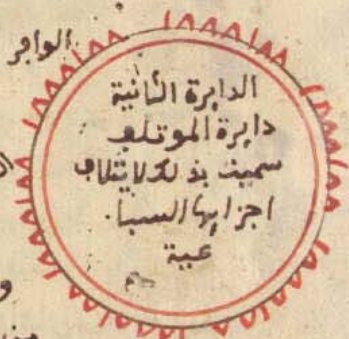 الوافر
الدايرة الثانية
دايرة الموتلف
سميت بذلك لايتلاف
اجزايها السبا
عية